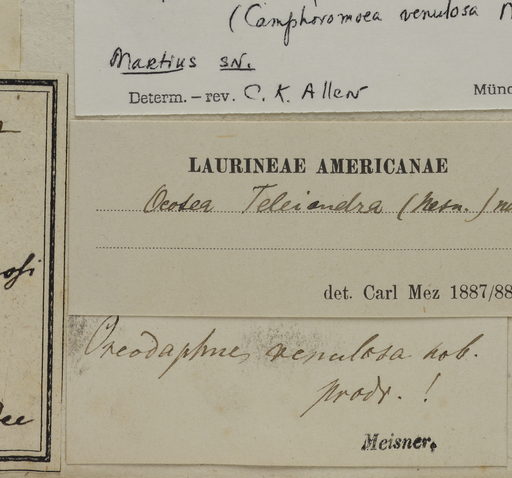 (Camphoromoea venulosa
Martius sn.
Determ. – rev. C. K. Allen
Münc
LAURINEAE AMERICANAE
Ocotea Teleiandra (Meisn.) m
det. Carl Mez 1887/88
Oreodaphne venulosa nob.
prodr. !
Meisner.